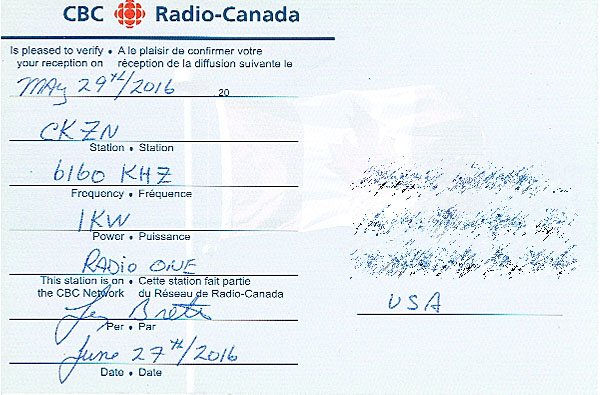 CBC Radio-Canada
Is pleased to verify • A le plaisir de confirmer votre
your reception on réception de la diffusion suivante le
May 29TH/2016 20
CKZN
Station • Station
6160 KHZ
Frequency • Fréquence
1KW
Power • Puissance
RADIO ONE
This station is on • Cette station fait partie
the CBC Network du Réseau de Radio-Canada
Per • Par
June 27TH/2016
Date • Date
USA